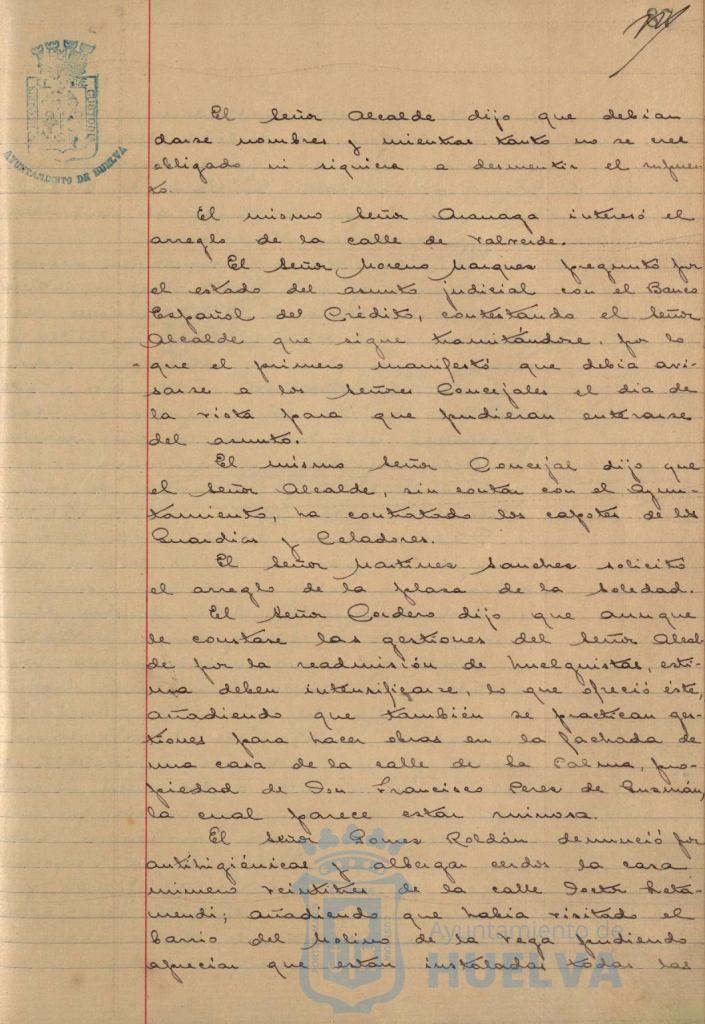 AYUNTAMIENTO DE HUELVA
El Señor Alcalde dijo que debian
darse nombres y mientras tanto no se cree
obligado ni siquiera a desmentir el supues-
to.
El mismo Señor Aranaga interesó el
arreglo de la calle de Valverde.
El Señor Moreno Marques preguntó por
el estado del asunto judicial con el Banco
Español del Crédito, contestando el Señor
Alcalde que sigue tramitándose, por lo
que el primero manifestó que debia avi-
sarse a los Señores Concejales el dia de
la vista para que pudieran enterarse
del asunto.
El mismo Señor Concejal dijo que
el Señor Alcalde, sin contar con el Ayun-
tamiento, ha contratado los capotes de los
Guardias y Celadores.
El Señor Martinez Sanchez solicitó
el arreglo de la plaza de la Soledad.
El Señor Cordero dijo que aunque
le constase las gestiones del Señor Alcal-
de por la readmisión de huelguistas, esti-
ma deben intensificarse, lo que ofreció éste,
añadiendo que también se practican ges-
tiones para hacer obras en la fachada de
una casa de la calle de La Palma, pro-
piedad de Don Francisco Perez de Guzmán,
la cual parece estar ruinosa.
El Señor Gomez Roldán denunció por
antihigiénicas y albergar cerdos la casa
número veintitres de la calle Doctor Leta-
mendi; añadiendo que habia visitado el
barrio del Molino de la Vega pudiendo
apreciar que estan instaladas todas las
Ayuntamiento de
HUELVA